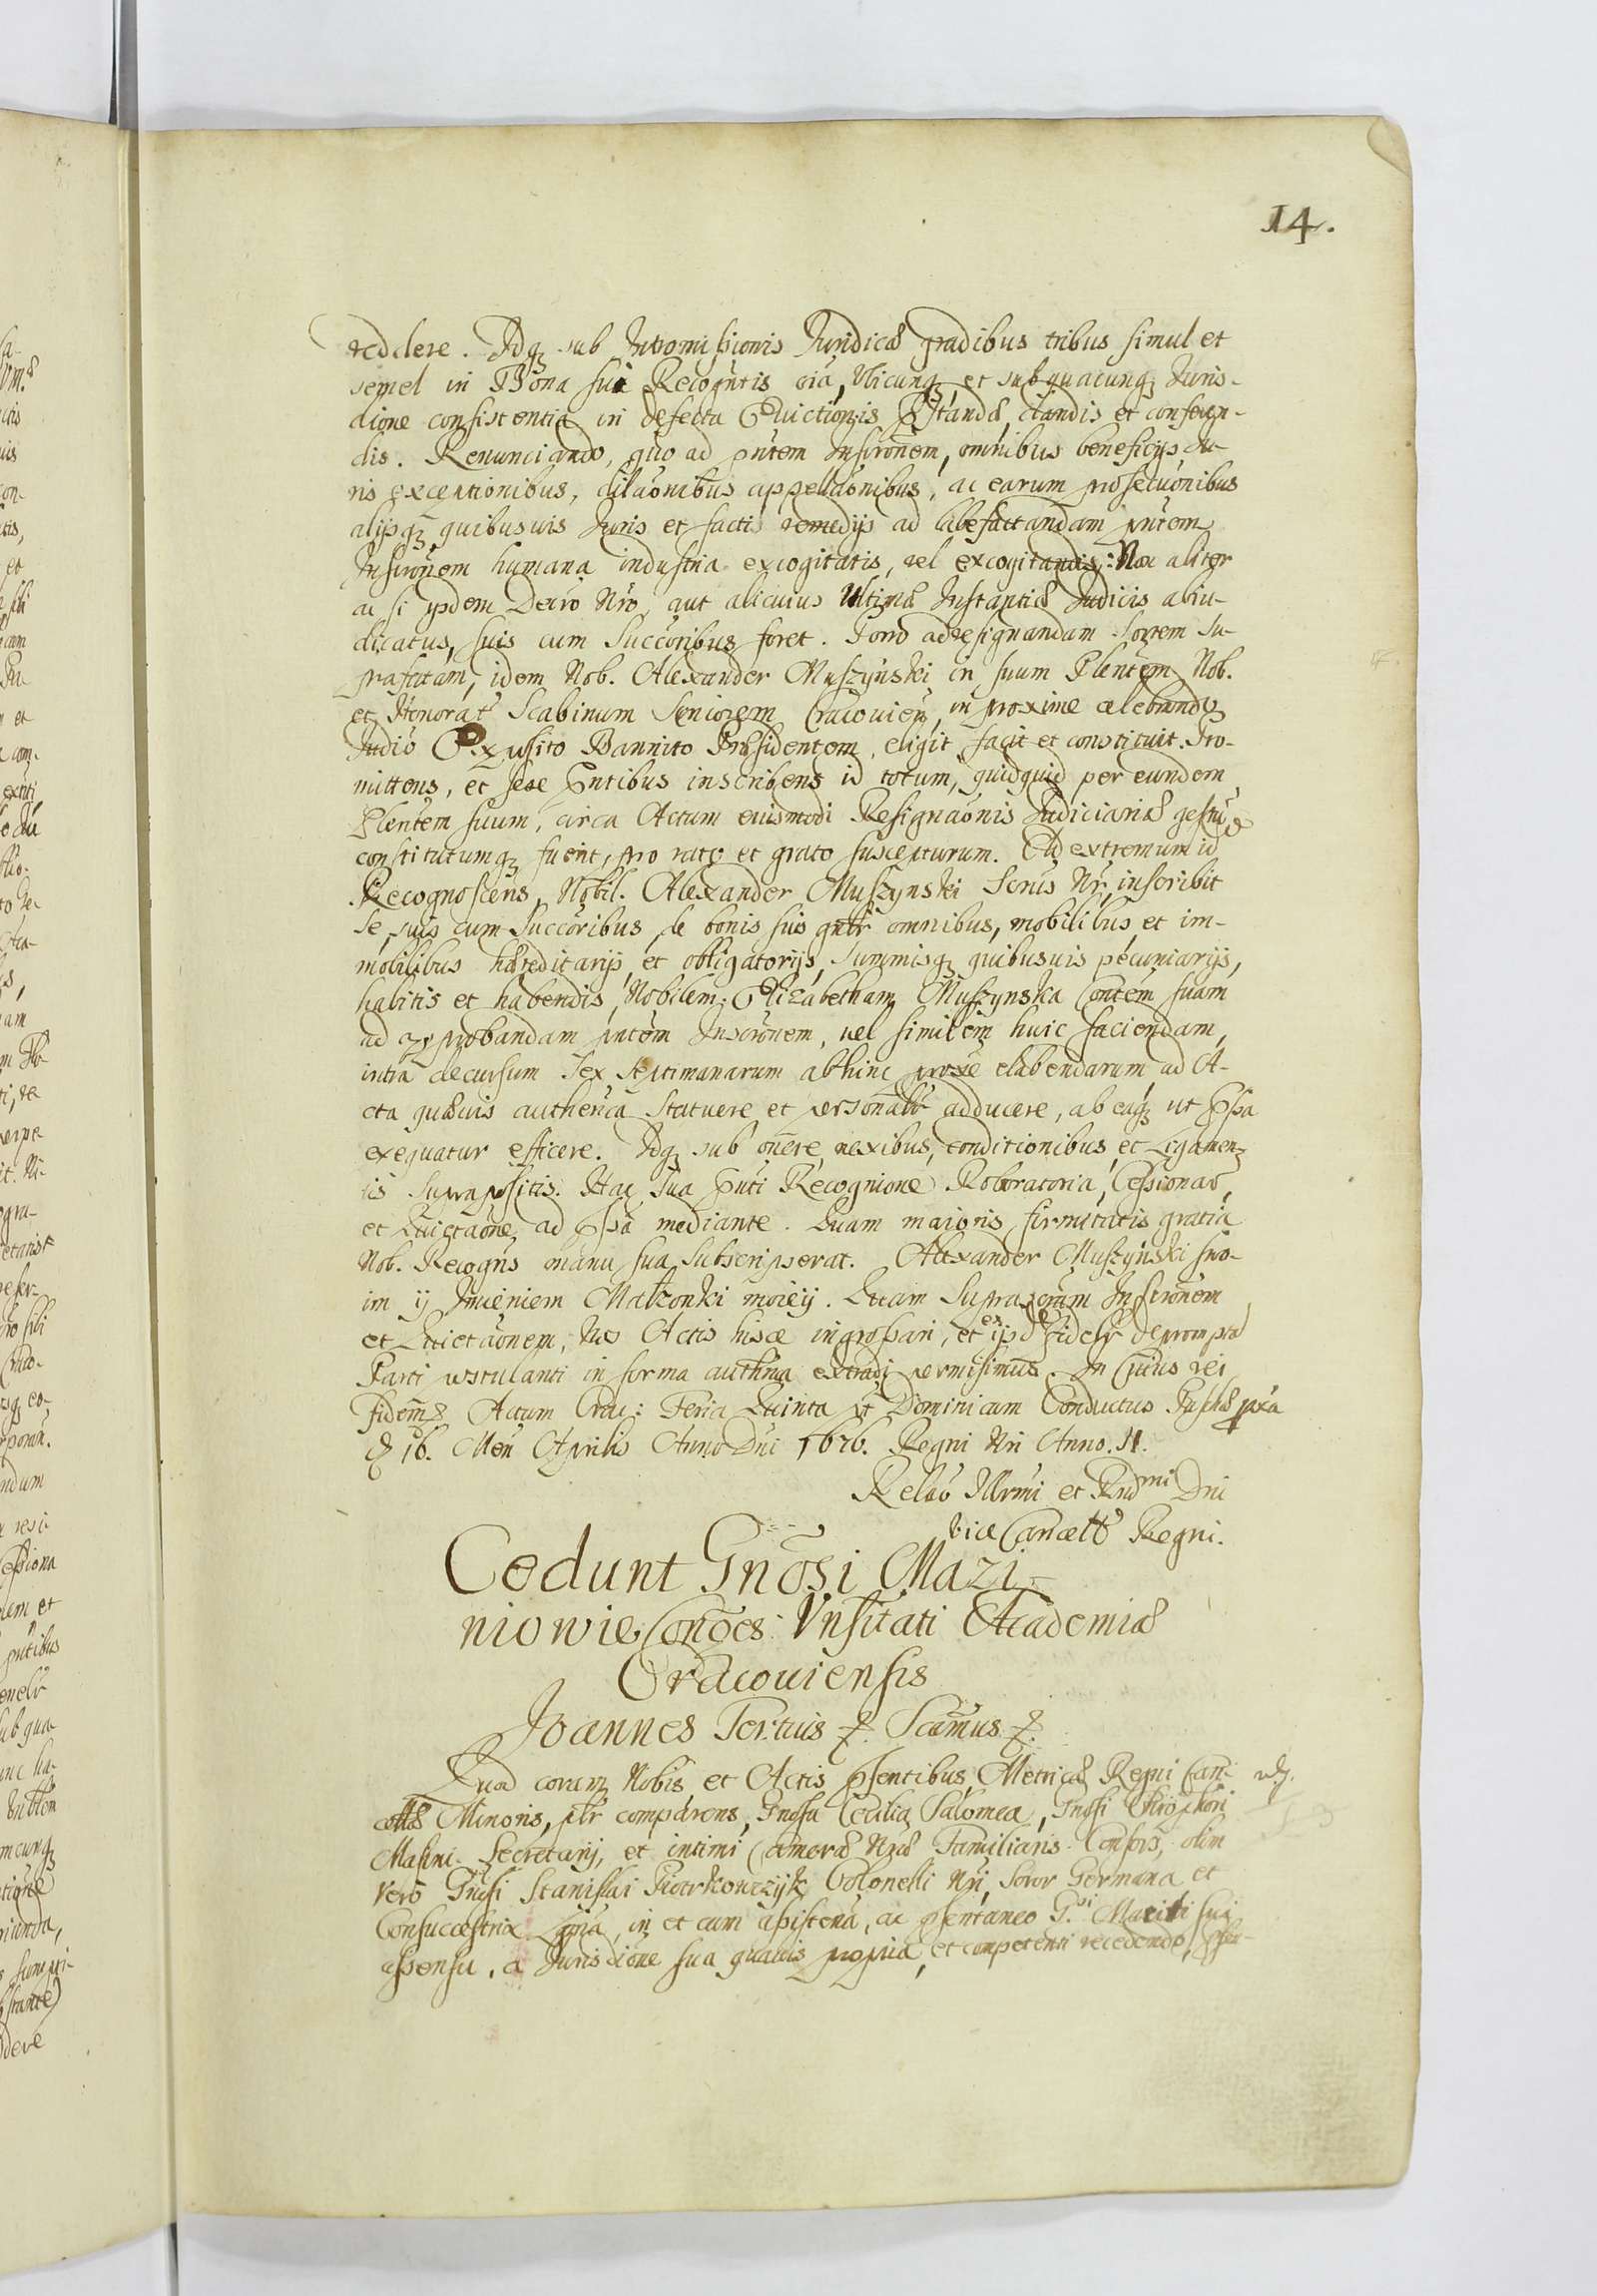 14.
reddere. Idq₃ sub Intromissionis Juridicæ gradibus tribus simul et
semel in Bona sua Recogñtis oiã, Vbicunq₃ et sub quacunq₃ Juris-
dione consistentia in defectu Euictionis pstandæ, citandis et conseqn-
dis. Renunciando, quo ad pñtem Inscrõnem, omnibus beneficijs Ju-
ris exceptionibus, dilãonibus appellãonibus, ac earum prosecuõnibus
alijsq₃ quibusuis Juris et facti remedijs ad labefactandam pñtem
Inscrõnem humana industria excogitatis, vel excogitandis: Nec aliter
ac si ijsdem Decro Nro, aut alicuius Vltimæ Instantiæ Judicis abiu-
dicatus, suis cum Succoribus foret. Porro ad resignandam Sortem su-
prafatam, idem Nob. Alexander Muszynski in suum Plentem Nob.
et Honorat Scabinum Seniorem Cracouien, in proxime celebrando
Judio Exposito Bannito Præsidentem, eligit facit et constituit. Pro-
mittens, et sese pntibus inscribens id totum, quidquid per eundem
Plentem suum, circa Actum eiusmodi Resignãonis Judiciariæ gestu
constitutumq₃ fuerit, pro rato et grato suscepturum. Ad extremum id
Recognoscens, Nobil. Alexander Muszynski Serus Nr, inscribit
se suis cum Succoribus, de bonis suis gnlr omnibus, mobilibus et im-
mobilibus hæreditarijs, et obligatorijs, Summisq₃ quibusuis pecuniarijs,
habitis et habendis, Nobilem Elizabetham Muszynska Contem suam
ad approbandam pntem Inscrõnem, vel similem huic faciendam,
intra decursum Sex Septimanarum abhinc proxe elabendarum ad A-
cta quæuis authenca Statuere et personalr adducere, ab eaq₃ ut pssa
exequatur efficere. Idq₃ sub onere, nexibus, conditionibus, et Ligamen-
tis Suprapositis. Hac Sua pnti Recognione Roboratoria, Cessionae,
et Quietãone ad pssa mediante. Quam maioris firmitatis gratia
Nob. Recogns manu sua Subscripserat. Alexander Muszynski swo-
im ij Imieniem Małzonki moieij. Quam Suprascram Inscrõnem
et Quietãonem, Nos Actis hisce ingrossari, et ex ijsd fidelr depromptæ
Parti postulanti in forma authnca extradi permisimus. In Cuius rei
fidem &. Actum Crac: Feria Quinta pt Dominicam Conductus Paschæ pxa
d 16. Men Aprilis Anno Dni 1676. Regni Nri Anno. II.
Relaõ Illrmi et Rndmi Dni
Vice Cancell Regni.
Cedunt Gnosi Mazi
niowie Conges Vnsitati Academiæ
Cracouiensis
Joannes Tertius &. Scamus &.
Quod coram Nobis et Actis psentibus Metricæ Regni Can-
cellæ Minoris, plr comparens, Gnosa Cecilia Salomea, Gnosi Chrophori
Masini Secretarij, et intimi Cameræ Nræ Familiaris Consors, olim
Vero Gnosi Stanislai Piotrkowczijk Colonelli Nri, Soror Germana et
Consuccestrix Lgma, in et cum assistena, ac psentaneo G.si Mariti sui
assensu, a Jurisdione sua quauis propria, et competenti recedendo,